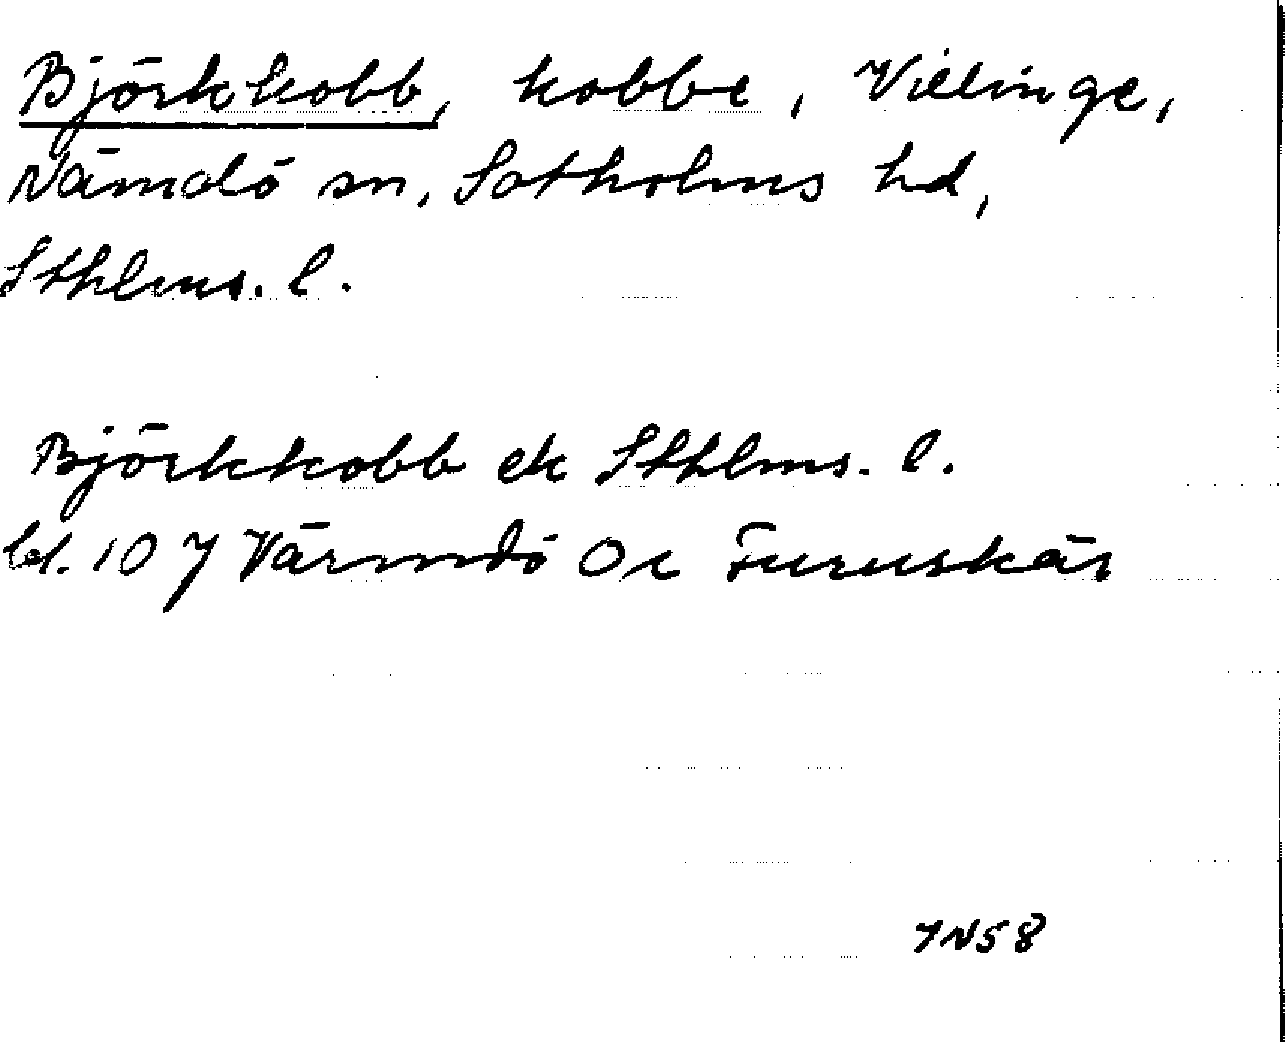 Björkkobb, kobbe, Villinge,
Nämdö sn, Sotholms hd,
Sthlms. l.
Björkkobb ek Sthlms. l.
bl. 107 Värmdö Oc Furuskär
YN58